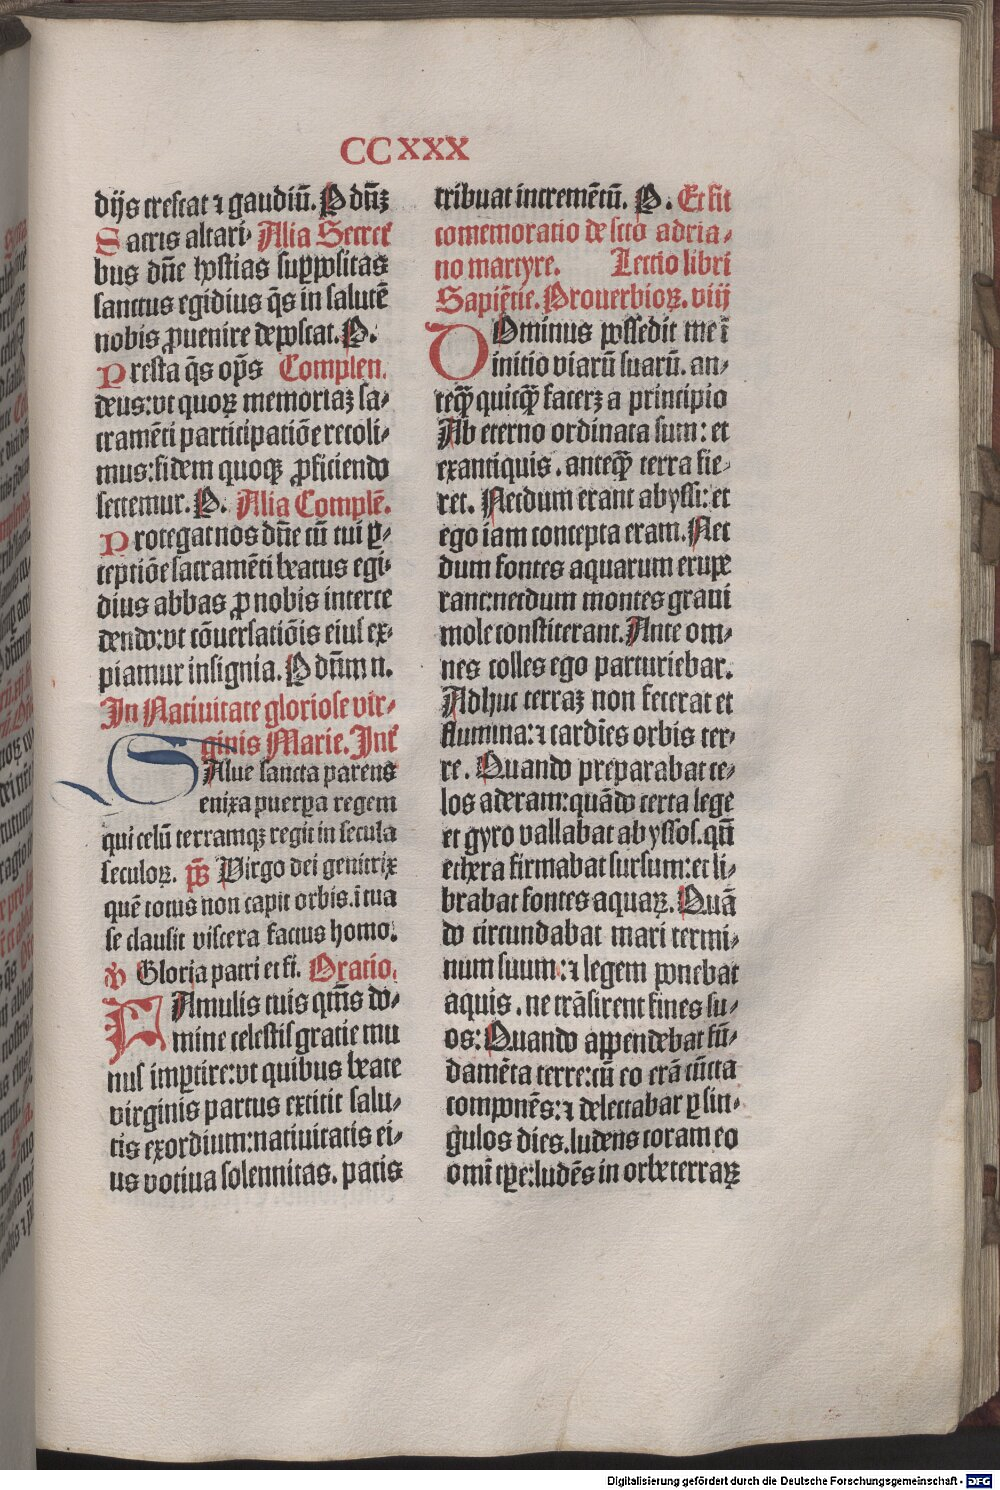 CCXXX
dijs crescat ⁊ gaudiū. P dn̄ꝫ
Sacris altari⸗ Alia Secret̄
bus dn̄e hostias suppositas
sanctus egidius q̄s in salutē
nobis ꝓuenire deposcat. P.
Presta q̄s op̄s Complen.
deus: vt quoꝝ memoriaꝫ sa⸗
cramēti participatiōe recoli⸗
mus: fidem quoqꝫ ꝓficiendo
sectemur. P. Alia Complē.
Protegat nos dn̄e cū tui ꝑ⸗
ceptiōe sacramēti beatus egi⸗
dius abbas ꝓ nobis interce
dendo: vt cōuersatiōis eius ex⸗
piamur insignia. P dn̄m n.
In Natiuitate gloriose vir⸗
ginis Marie. Int̄
SAlue sancta parens
enixa puerpa regem
qui celū terramqꝫ regit in secula
seculoꝝ. ps̄ Virgo dei genitrix
quē totus non capit orbis. ī tua
se clausit viscera factus homo.
V Gloria patri et fi. Oratio.
FAmulis tuis qm̄s do⸗
mine celestis gratie mu
nus imꝑtire: vt quibus beate
virginis partus extitit salu⸗
tis exordium: natiuitatis ei⸗
us votiua solennitas. pacis
tribuat incremētū. P. Et fit
comemoratio de scō adria⸗
no martyre. Lectio libri
Sapiētie. Prouerbioꝝ. viij
DOminus possedit me ī
initio viarū suarū. an⸗
teqꝫ quicqꝫ facerꝫ a principio
Ab eterno ordinata sum: et
ex antiquis. anteqꝫ terra fie⸗
ret. Necdum erant abyssi: et
ego iam concepta eram. Nec
dum fontes aquarum erupe
rant: necdum montes graui
mole constiterant. Ante om⸗
nes colles ego parturiebar.
Adhuc terraꝫ non fecerat et
flumina: ⁊ cardies orbis ter⸗
re. Quando preparabat ce⸗
los aderam: quādo certa lege
et gyro vallabat abyssos. qn̄
ethera firmabat sursum: et li⸗
brabat fontes aquaꝝ. Quā
do circundabat mari termi⸗
num suum: ⁊ legem ponebat
aquis. ne trāsirent fines su⸗
os: Quando appendebat fū⸗
damēta terre: cū eo erā cūcta
componēs: ⁊ delectabar ꝑ sin⸗
gulos dies. ludens coram eo
omī tꝑe: ludēs in orbe terraꝝ
Digitalisierung gefördert durch die Deutsche Forschungsgemeinschaft - DFG